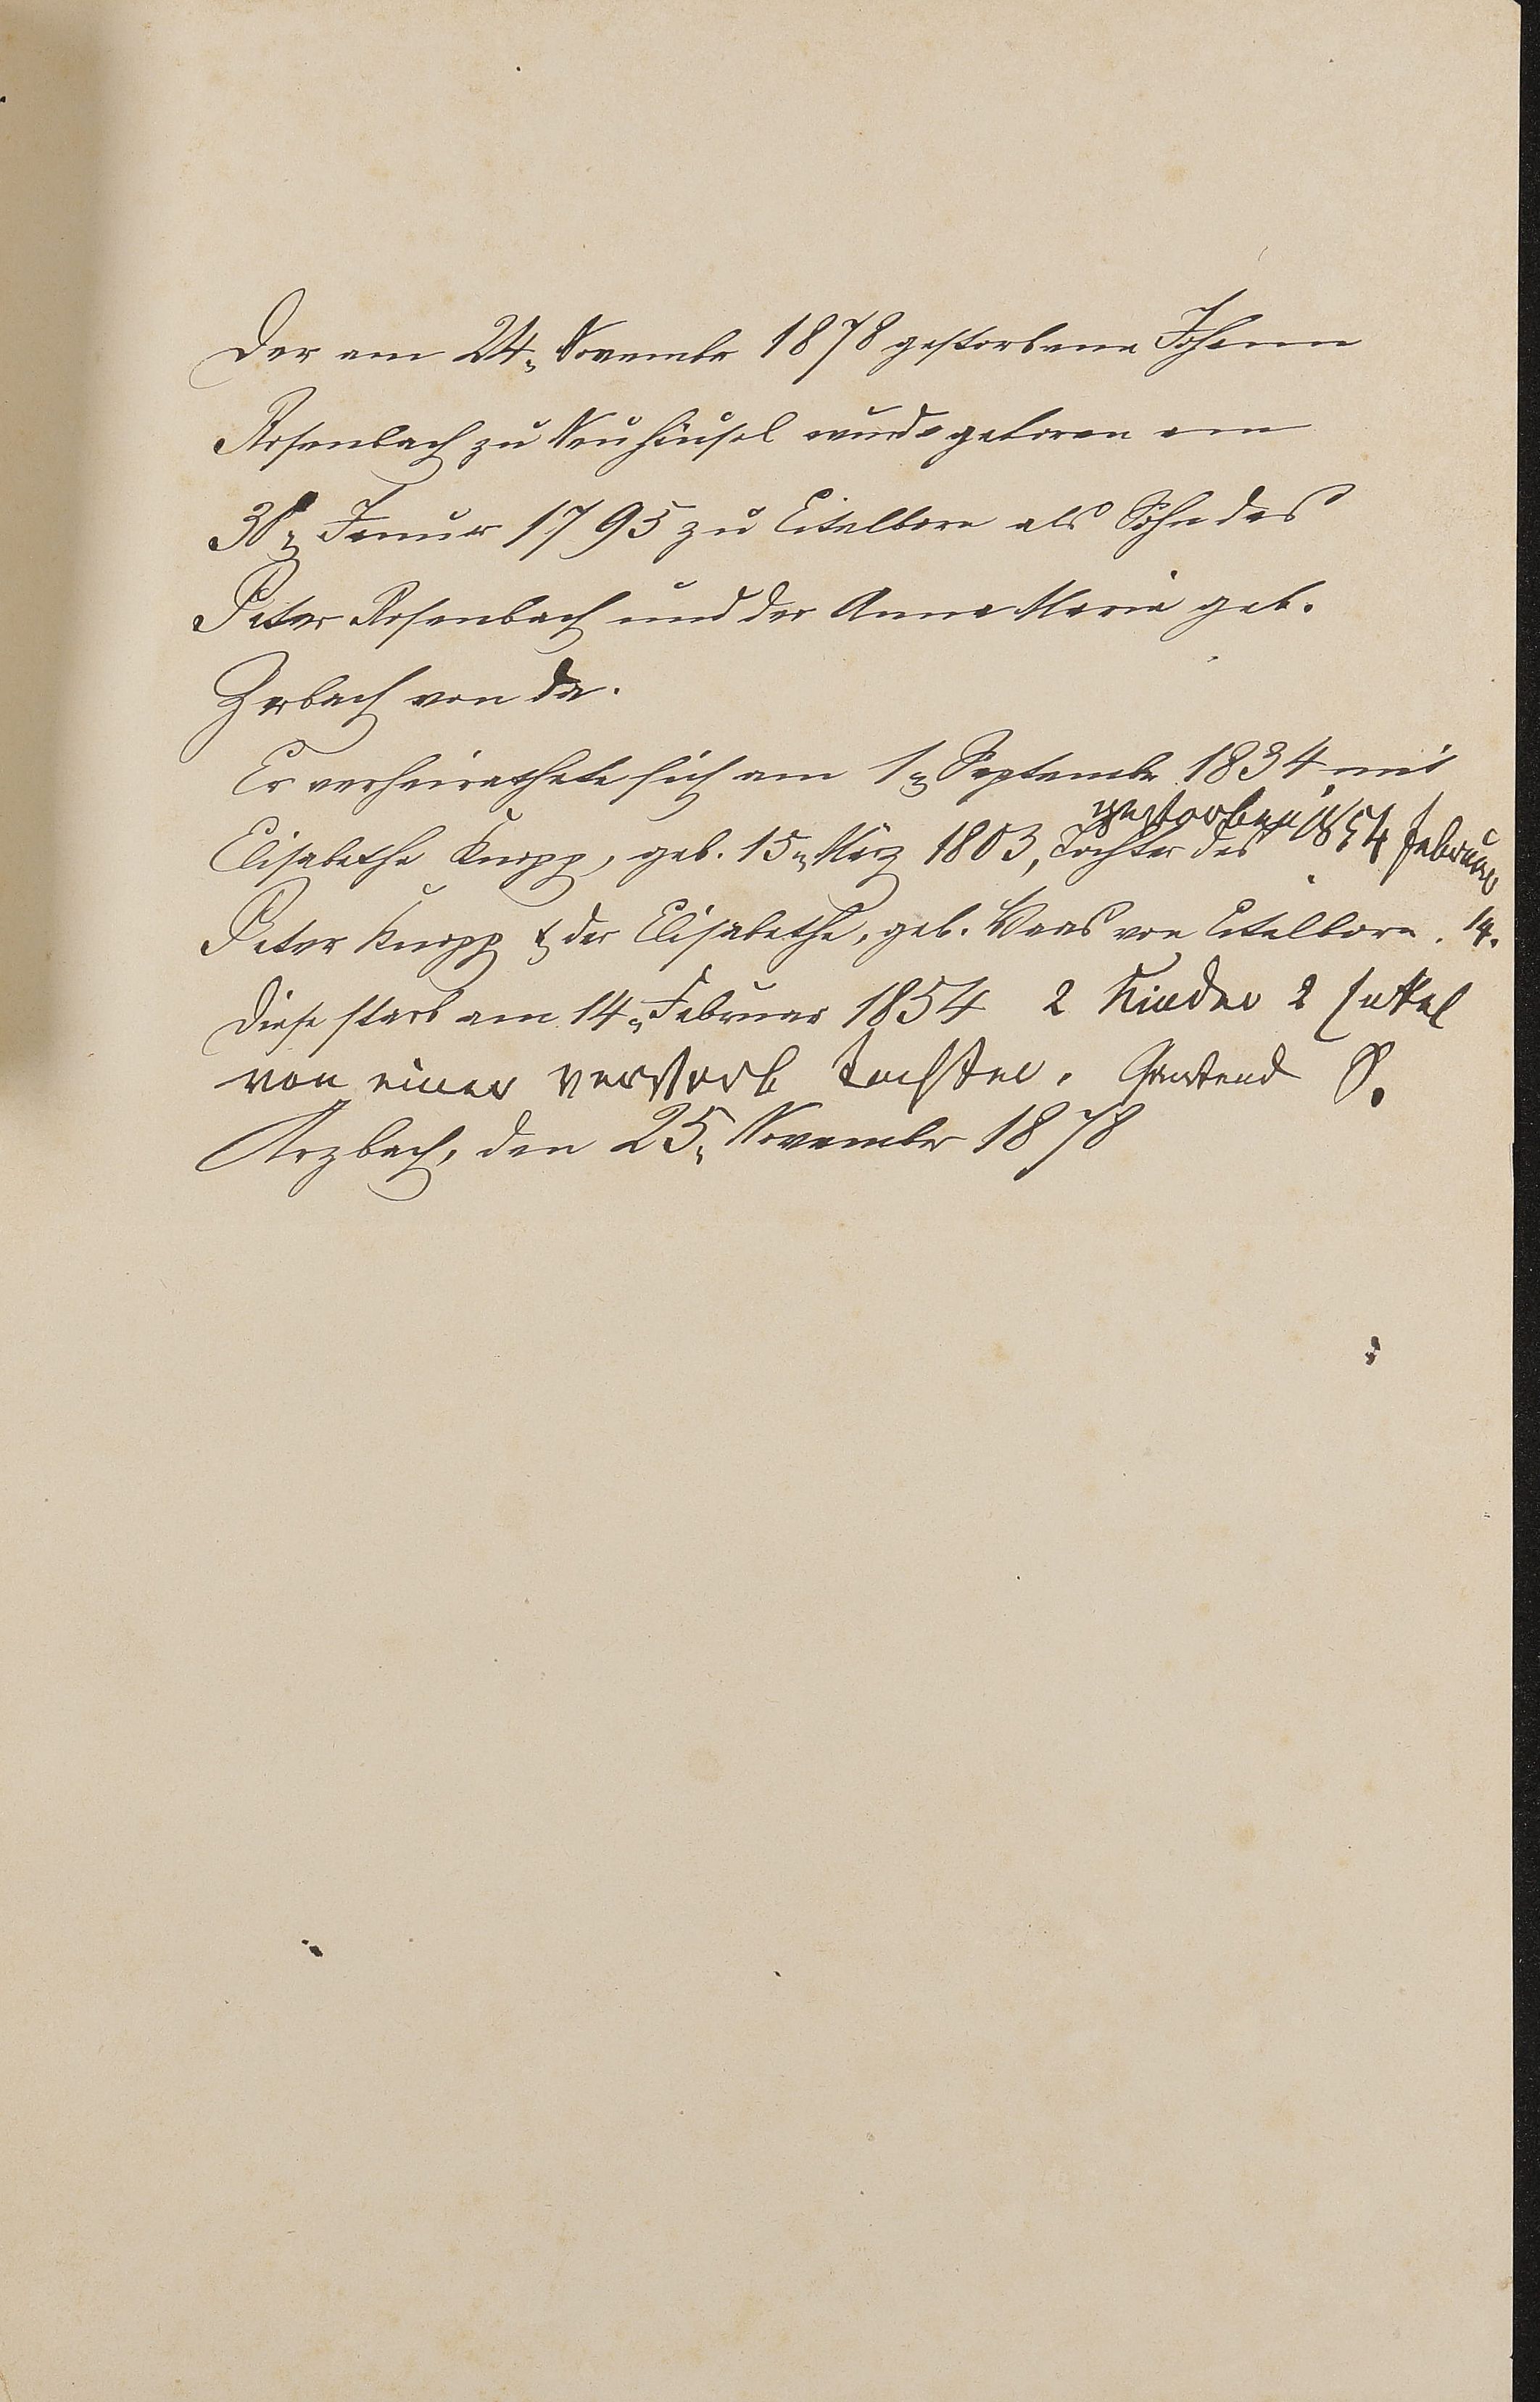 Der am 24. November 1878 gestorbene Johann
Rosenbach zu Neuhäusel wurde geboren am
30. Januar 1795 zu Eitelborn als Sohn des
Peter Rosenbach und der Anna Maria geb.
Zerbach von da.
Er verheirathete sich am 1. September 1834 mit
gestorben 1854 Februar
Elisabethe Knopp, geb. 15. März 1803, Tochter des
Peter Knopp & der Elisabethe, geb. Waas von Eitelborn. 14.
Diese starb am 14. Februar 1854 2 Kinder 2 Enkel
von einer verstorb Tochter. S.
Arzbach, den 25. November 1878